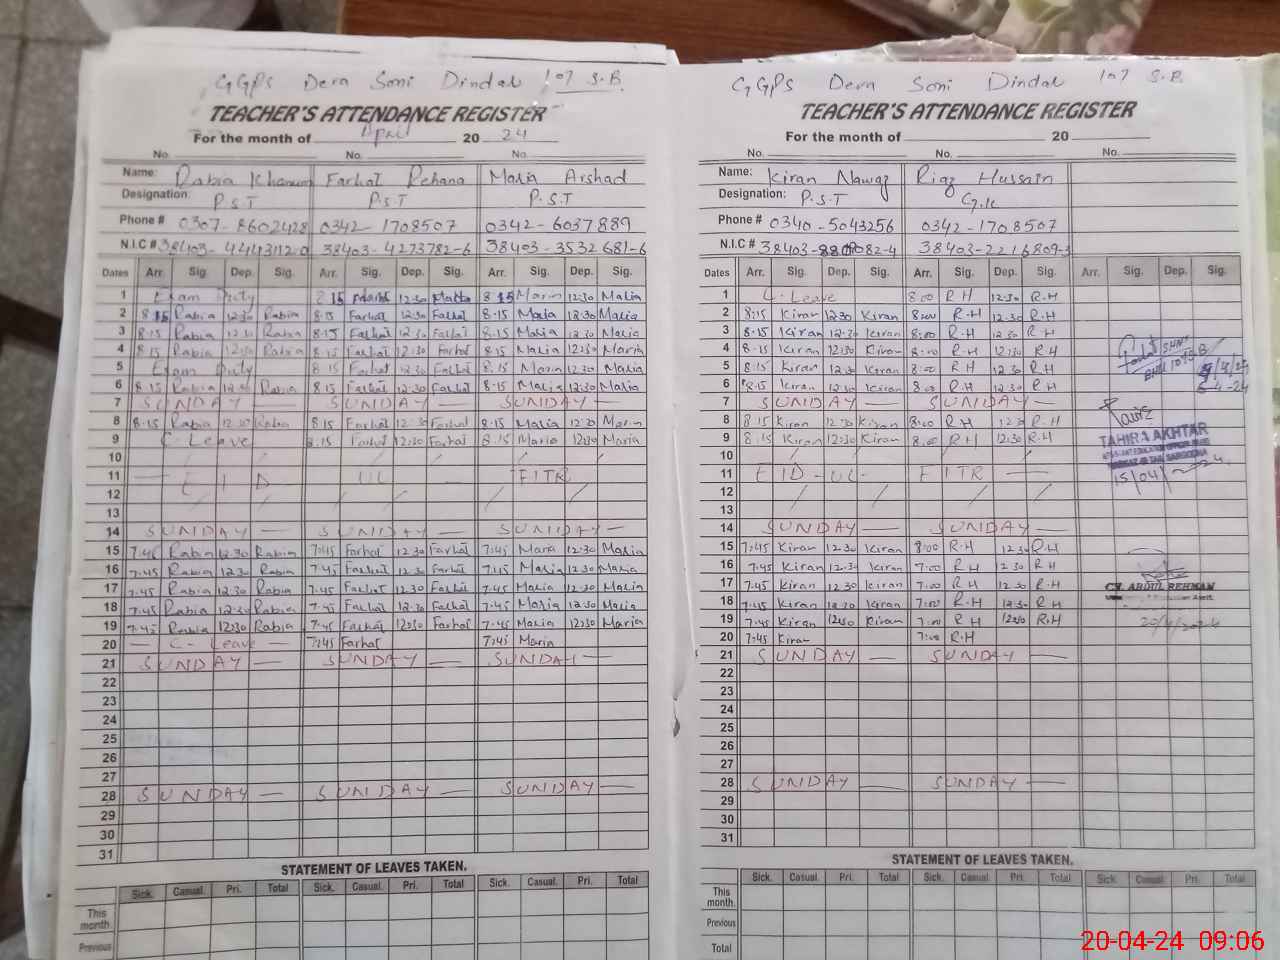 GGPS Dera Soni Dindal 107 S.B.
TEACHER'S ATTENDANCE REGISTER
For the month of April 20 24
No. No. No.
Name: Rabia Khanum Farhat Rehana Maria Arshad
Designation: P.S.T P.S.T P.S.T
Phone # 0307-8602428 0342-1708507 0342-6037889
N.I.C # 38403-4273782-6 38403-3532681-6
Dates Arr. Sig. Dep. Sig. Arr. Sig. Dep. Sig. Arr. Sig. Dep. Sig.
1 Exam Duty 8 15 12:30 8 15 Maria 12:30 Maria
2 8 15 Rabia 12:30 Rabia 8:15 Farhat 12:30 Farhat 8-15 Maria 12:30 Maria
3 8:15 Rabia 12:30 Rabia 8:15 Farhat 12:30 Farhat 8:15 Maria 12:30 Maria
4 8:15 Rabia 12:30 Rabia 8:15 Farhat 12:30 Farhat 8:15 Maria 12:30 Maria
5 Exam Duty 8:15 Farhat 12:30 Farhat 8:15 Maria 12:30 Maria
6 8:15 Rabia 12:30 Rabia 8:15 Farhat 12:30 Farhat 8:15 Maria 12:30 Maria
7 SUNDAY — SUNDAY — SUNDAY —
8 8:15 Rabia 12:30 Rabia 8:15 Farhat 12:30 Farhat 8:15 Maria 12:30 Maria
9 C-Leave 8:15 Farhat 12:30 Farhat 8:15 Maria 12:30 Maria
10
11 — EID UL FITR —
12
13
14 SUNDAY — SUNDAY — SUNDAY —
15 7:45 Rabia 12:30 Rabia 7:45 Farhat 12:30 Farhat 7:45 Maria 12:30 Maria
16 7:45 Rabia 12:30 Rabia 7:45 Farhat 12:30 Farhat 7:45 Maria 12:30 Maria
17 7:45 Rabia 12:30 Rabia 7:45 Farhat 12:30 Farhat 7:45 Maria 12:30 Maria
18 7:45 Rabia 12:30 Rabia 7:45 Farhat 12:30 Farhat 7:45 Maria 12:30 Maria
19 7:45 Rabia 12:30 Rabia 7:45 Farhat 12:30 Farhat 7:45 Maria 12:30 Maria
20 — C-Leave — 7:45 Farhat 7:45 Maria
21 SUNDAY — SUNDAY — SUNDAY —
22
23
24
25
26
27
28 SUNDAY — SUNDAY — SUNDAY —
29
30
31
STATEMENT OF LEAVES TAKEN.
Sick. Casual. Pri. Total Sick. Casual. Pri. Total Sick. Casual. Pri. Total
This month
Previous
GGPS Dera Soni Dindal 107 S.B.
TEACHER'S ATTENDANCE REGISTER
For the month of 20
No. No. No.
Name: Kiran Nawaz Riaz Hussain
Designation: P.S.T
Phone # 0340-5043256 0342-1708507
N.I.C # 38403-2216809-3
Dates Arr. Sig. Dep. Sig. Arr. Sig. Dep. Sig. Arr. Sig. Dep. Sig.
1 C-Leave 8:00 R-H 12:30 R-H
2 8:15 Kiran 12:30 Kiran 8:00 R-H 12:30 R-H
3 8:15 Kiran 12:30 Kiran 8:00 R-H 12:30 R-H
4 8:15 Kiran 12:30 Kiran 8:00 R-H 12:30 R-H
5 8:15 Kiran 12:30 Kiran 8:00 R-H 12:30 R-H
6 8:15 Kiran 12:30 Kiran 8:00 R-H 12:30 R-H
7 SUNDAY — SUNDAY —
8 8:15 Kiran 12:30 Kiran 8:00 R-H 12:30 R-H
9 8:15 Kiran 12:30 Kiran 8:00 R-H 12:30 R-H
TAHIRA AKHTAR
15/04/
10
11 EID-UL- FITR —
12
13
14 SUNDAY — SUNDAY —
15 7:45 Kiran 12:30 Kiran 8:00 R-H 12:30 R-H
16 7:45 Kiran 12:30 Kiran 7:00 R-H 12:30 R-H
17 7:45 Kiran 12:30 Kiran 7:00 R-H 12:30 R-H
CH. ABDUL REHMAN
18 7:45 Kiran 12:30 Kiran 7:00 R-H 12:30 R-H
19 7:45 Kiran 12:30 Kiran 7:00 R-H 12:30 R-H
20/4/2024
20 7:45 Kiran 7:00 R-H
21 SUNDAY — SUNDAY —
22
23
24
25
26
27
28 SUNDAY — SUNDAY —
29
30
31
STATEMENT OF LEAVES TAKEN.
Sick. Casual. Pri. Total Sick. Casual. Pri. Total Sick. Casual. Pri. Total
This month.
Previous
Total
20-04-24 09:06